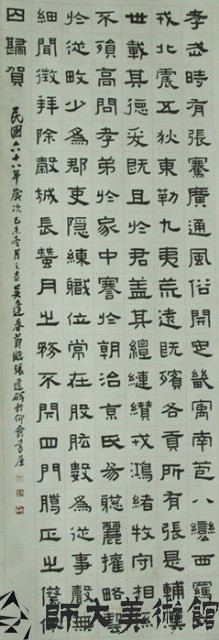 孝武時有張騫廣通風俗開定畿寓南苞八蠻西羈六
戎北震五狄東勒九夷荒遠既殯各貢所有張是輔漢
世載其德爰既且於君蓋其繵縺纘戎鴻緒牧守相係
不殞高問孝弟於家中謇於朝治京氏易聰麗權略藝
於從畋少為郡吏隱練職位常在股肱數為從事聲無
細聞徵拜除穀城長蠶月之務不閉四門臘正之僚休
囚歸賀
民國六十八年歲次己未冬月之吉吳蓬春節臨張遷碑於仰俞書屋
師大美術館